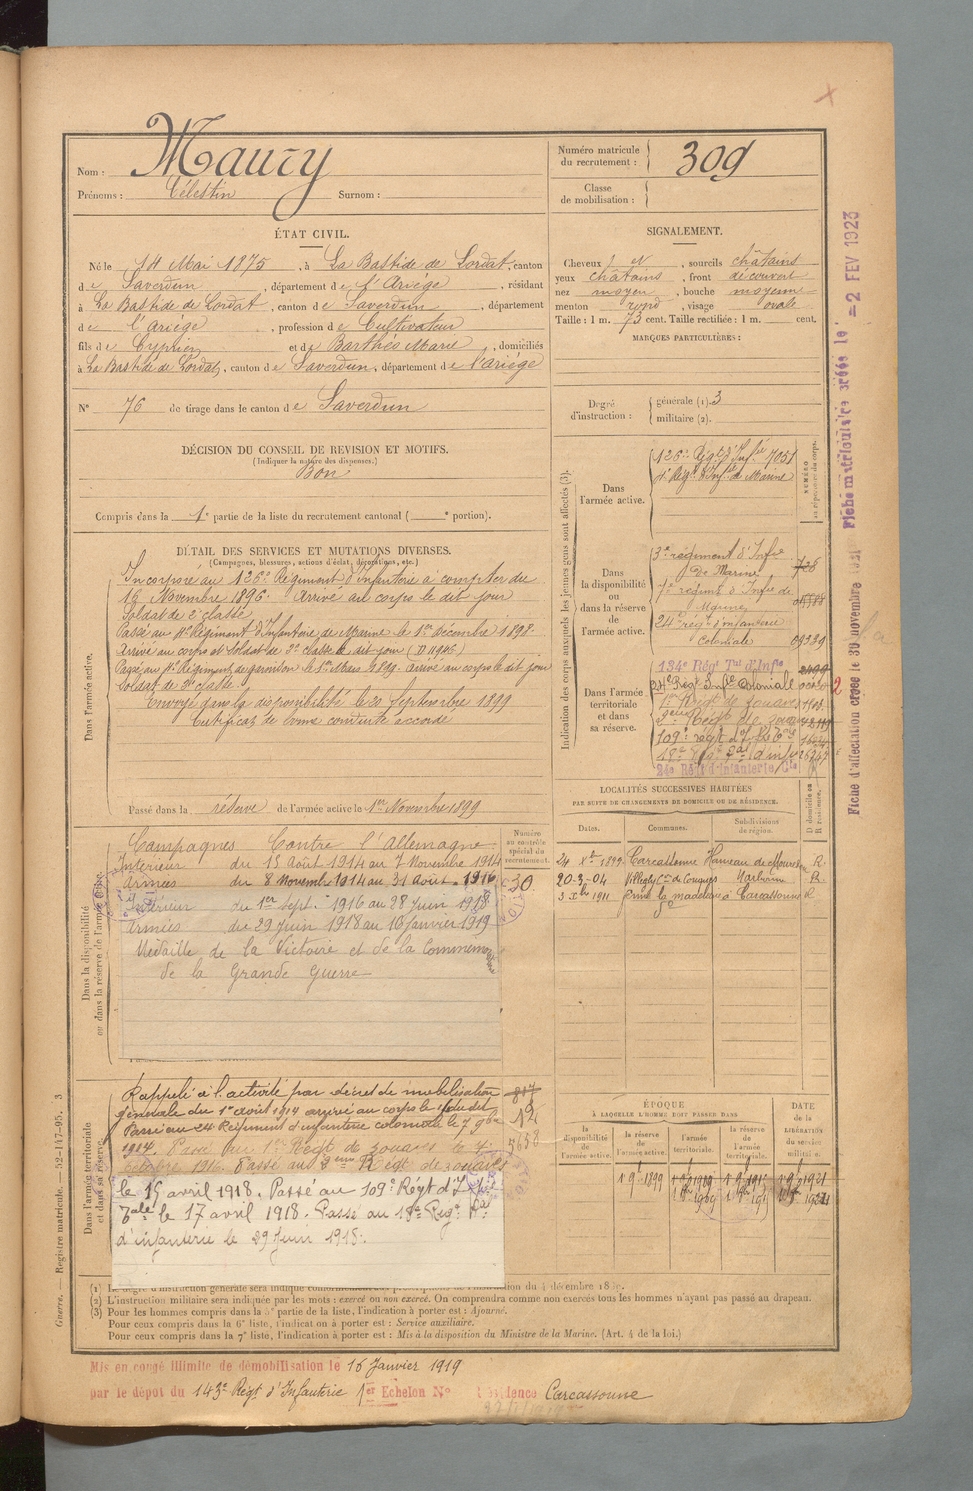 Nom : Maury
Prénoms : Célestin Surnom :
Numéro matricule du recrutement : 309
Classe de mobilisation :
ÉTAT CIVIL.
Né le 14 Mai 1875, à La Bastide de Lordat, canton
de Saverdun, département de l'Ariège, résidant
à La Bastide de Lordat, canton de Saverdun, département
de l'Ariège, profession de Cultivateur
fils de Cyprien et de Barthés Marie, domiciliés
à La Bastide de Lordat, canton de Saverdun, département de l'Ariège
N° 76 de tirage dans le canton de Saverdun
SIGNALEMENT.
Cheveux N, sourcils châtains
yeux châtains, front découvert
nez moyen, bouche moyenne
menton rond, visage ovale
Taille : 1 m. 73 cent. Taille rectifiée : 1 m. cent.
MARQUES PARTICULIÈRES :
Degré d'instruction : générale (1). 3
militaire (2).
DÉCISION DU CONSEIL DE REVISION ET MOTIFS.
(Indiquer la nature des dispenses.)
Bon
Compris dans la 1e partie de la liste du recrutement cantonal ( e portion).
DÉTAIL DES SERVICES ET MUTATIONS DIVERSES.
(Campagnes, blessures, actions d'éclat, décorations, etc.)
Dans l'armée active.
Incorporé au 126e Régiment d'Infanterie à compter du
16 Novembre 1896. Arrivé au corps le dit jour
Soldat de 2e classe
Passé au 4e Régiment d'Infanterie de Marine le 1er Décembre 1898.
Arrivé au corps et Soldat de 2e classe le dit jour
Passé au Régiment de garnison le 1er Mars 1899. arrivé au corps le dit jour
Soldat de 2e classe.
Envoyé dans la disponibilité le 20 Septembre 1899
Certificat de bonne conduite accordé
Passé dans la réserve de l'armée active le 1er Novembre 1899
Dans la disponibilité ou dans la réserve de l'armée active.
Campagnes Contre l'Allemagne
Intérieur du 15 Août 1914 au 7 Novembre 1914
Armées du 8 Novembre 1914 au 31 Août 1916
Intérieur du 1er Sept. 1916 au 28 Juin 1918
Armées du 29 Juin 1918 au 16 Janvier 1919
Médaille de la Victoire et de la Commémor
de la Grande Guerre
Numéro au contrôle spécial du recrutement.
30
Dans l'armée territoriale et dans sa réserve.
Rappelé à l'activité par décret de mobilisation
générale du 1er août 1914 arrivé au corps le
Passé au 24 Régiment d'infanterie coloniale le 7 9bre
1914. Passé au 1er Régt de zouaves le
octobre 1916. Passé au 2ème Régt de zouaves
le 15 avril 1918. Passé au 109e Régt d'I
le 17 avril 1918. Passé au 18e Régt
d'infanterie le 29 Juin 1918.
Indication des corps auxquels les jeunes gens sont affectés (3).
NUMÉRO au répertoire du corps.
Dans l'armée active.
126e Régt d'Infrie 7051
4e Régt d'Infie de Marine
Dans la disponibilité ou dans la réserve de l'armée active.
3e régiment d'Infie de Marine 728
7e régiment d'Infie de Marine
24e régt d'infanterie Coloniale 09939
Dans l'armée territoriale et dans sa réserve.
134e Régt Tal d'Infie
24e Régt Infie Coloniale
1er Régt de zouaves
2ème Régt de zouaves
109e régt d'I
18e Régt d'inf
24e Régt d'infanterie Cle
LOCALITÉS SUCCESSIVES HABITÉES
PAR SUITE DE CHANGEMENTS DE DOMICILE OU DE RÉSIDENCE.
Dates. Communes. Subdivisions de région. D domicile ou R résidence.
24 Xbre 1899 Carcassonne Hameau de R.
20-3-04 Villegly Con de Conques Narbonne R
3 Xbre 1911 la madelaine à Carcassonne R
ÉPOQUE
À LAQUELLE L'HOMME DOIT PASSER DANS
la disponibilité de l'armée active. la réserve de l'armée active. l'armée territoriale. la réserve de l'armée territoriale.
DATE de la LIBÉRATION du service militaire.
1 9bre 1899
(1) Le degré d'instruction générale sera indiqué du 4 décembre
(2) L'instruction militaire sera indiquée par les mots : exercé ou non exercé. On comprendra comme non exercés tous les hommes n'ayant pas passé au drapeau.
(3) Pour les hommes compris dans la 5e partie de la liste, l'indication à porter est : Ajourné.
Pour ceux compris dans la 6e liste, l'indication à porter est : Service auxiliaire.
Pour ceux compris dans la 7e liste, l'indication à porter est : Mis à la disposition du Ministre de la Marine. (Art. 4 de la loi.)
Mis en congé illimité de démobilisation le 16 Janvier 1919
par le dépôt du 143e Régt d'Infanterie 1er Echelon N° Résidence Carcassonne
Guerre. — Registre matricule. — 52-147-95. 3
Fiche matriculaire créée le -2 FEV 1923
Fiche d'affectation créée le 30 novembre